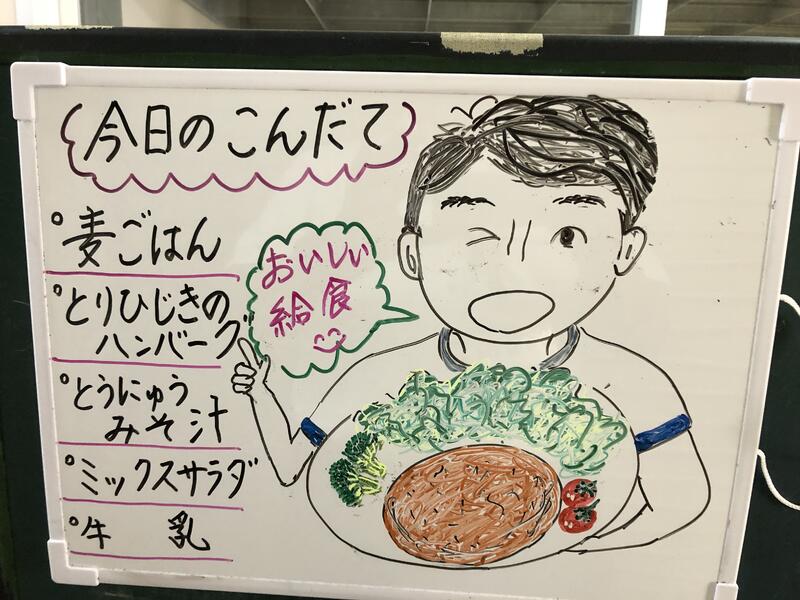 今日のこんだて
麦ごはん
とりひじきの
ハンバーグ
とうにゅう
みそ汁
ミックスサラダ
牛 乳
おいしい
給食